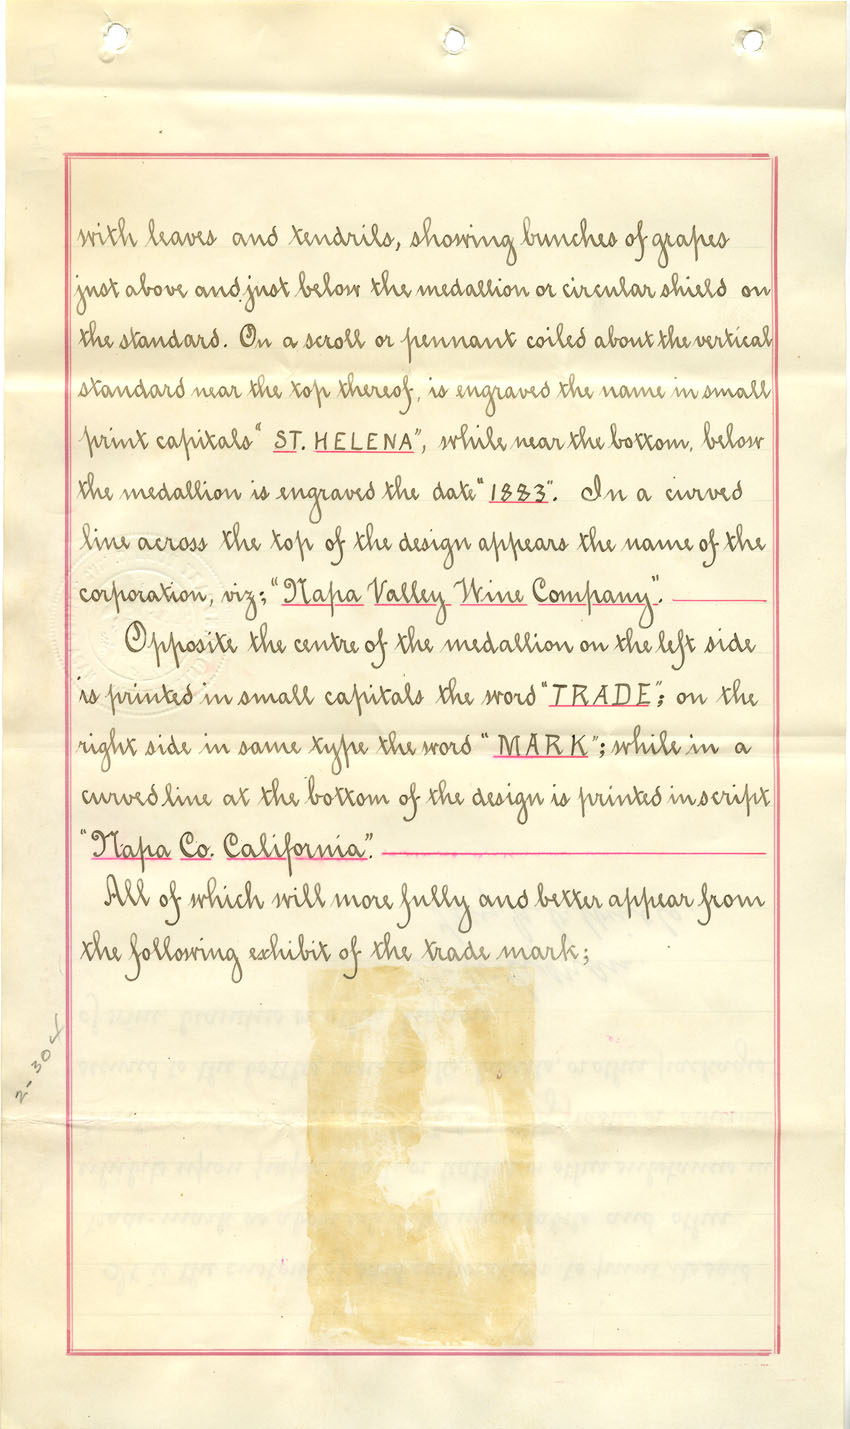 with leaves and tendrils, showing bunches of grapes
just above and just below the medallion or circular shield on
the standard. On a scroll or pennant coiled about the vertical
standard near the top thereof, is engraved the name in small
print capitals "ST. HELENA", while near the bottom, below
the medallion is engraved the date "1883". In a curved
line across the top of the design appears the name of the
corporation, viz; "Napa Valley Wine Company".
Opposite the centre of the medallion on the left side
is printed in small capitals the word "TRADE"; on the
right side in same type the word "MARK"; while in a
curved line at the bottom of the design is printed in script
"Napa Co. California".
All of which will more fully and better appear from
the following exhibit of the trade mark;
2-304